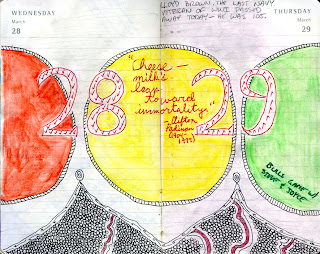 WEDNESDAY
March
28
LLOYD BROWN, THE LAST NAVY
VETERAN OF WWI PASSED
AWAY TODAY – HE WAS 105.
THURSDAY
March
29
28
29
"Cheese –
milk's
leap
toward
immortality."
– Clifton
Fadiman
(1904-
1999)
BULL GAME W/
STEVE & JOYCE